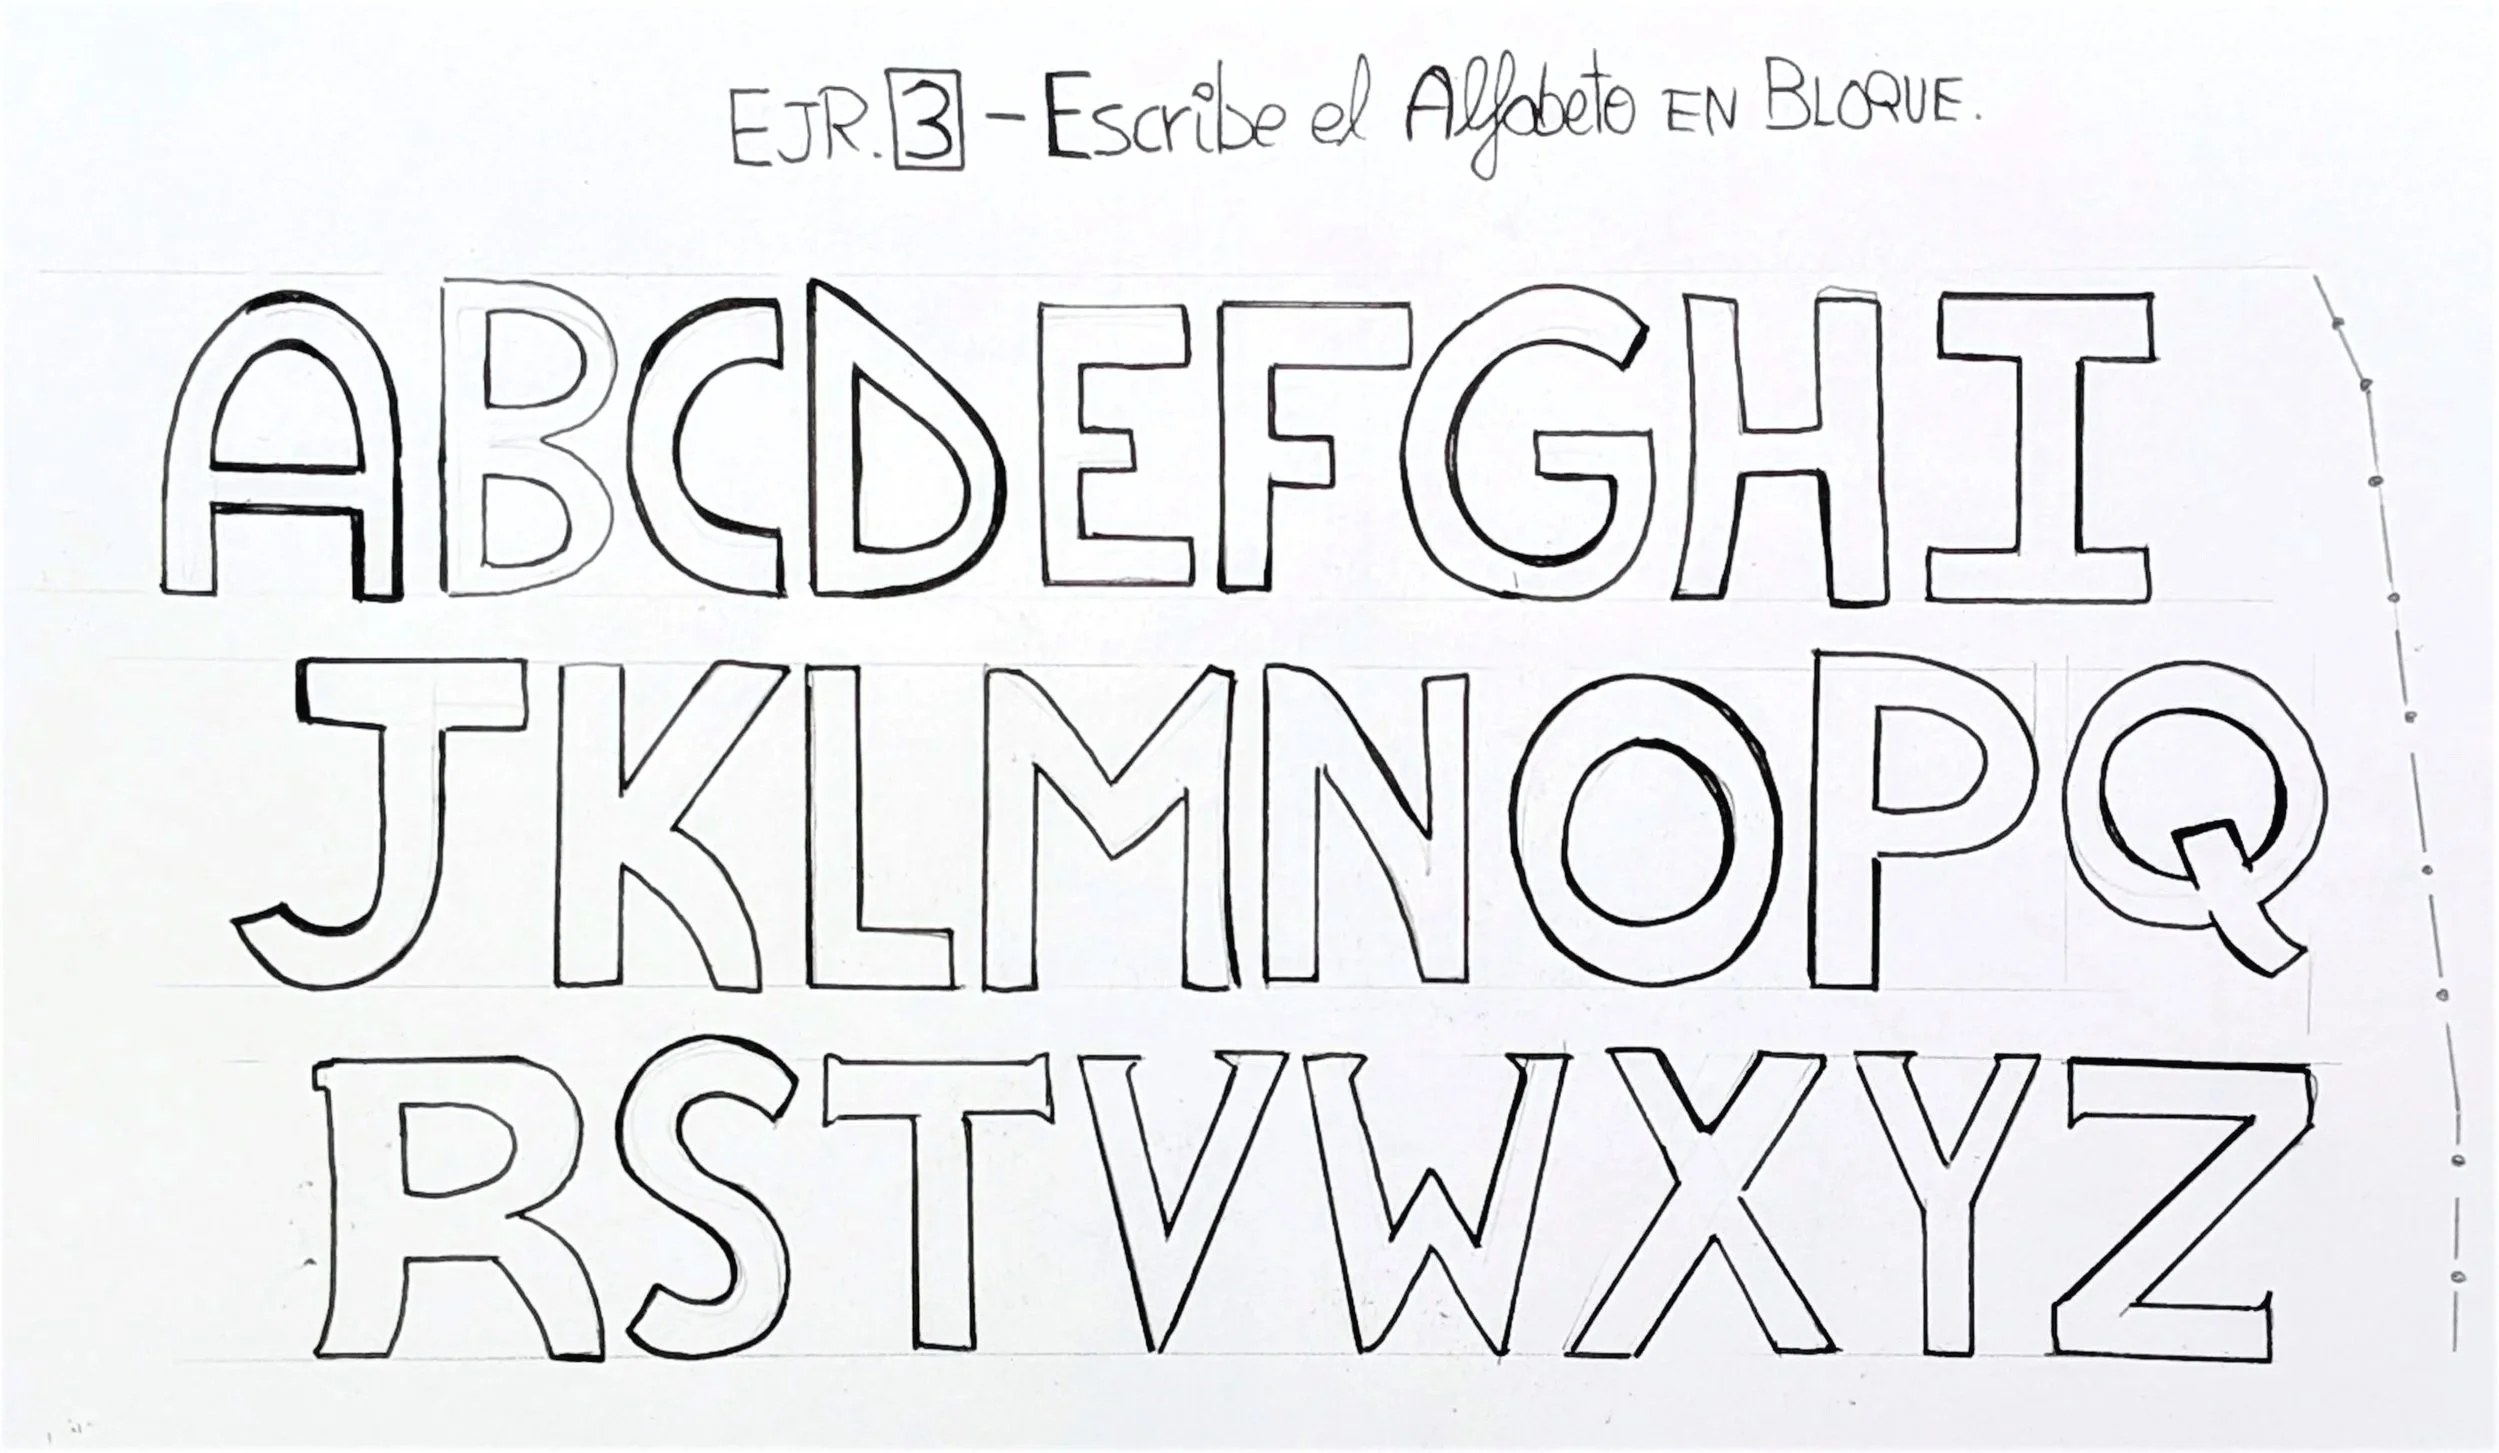 EJR. 3 - Escribe el Alfabeto EN BLOQUE.
ABCDEFGHI
JKLMNOPQ
RSTVWXYZ